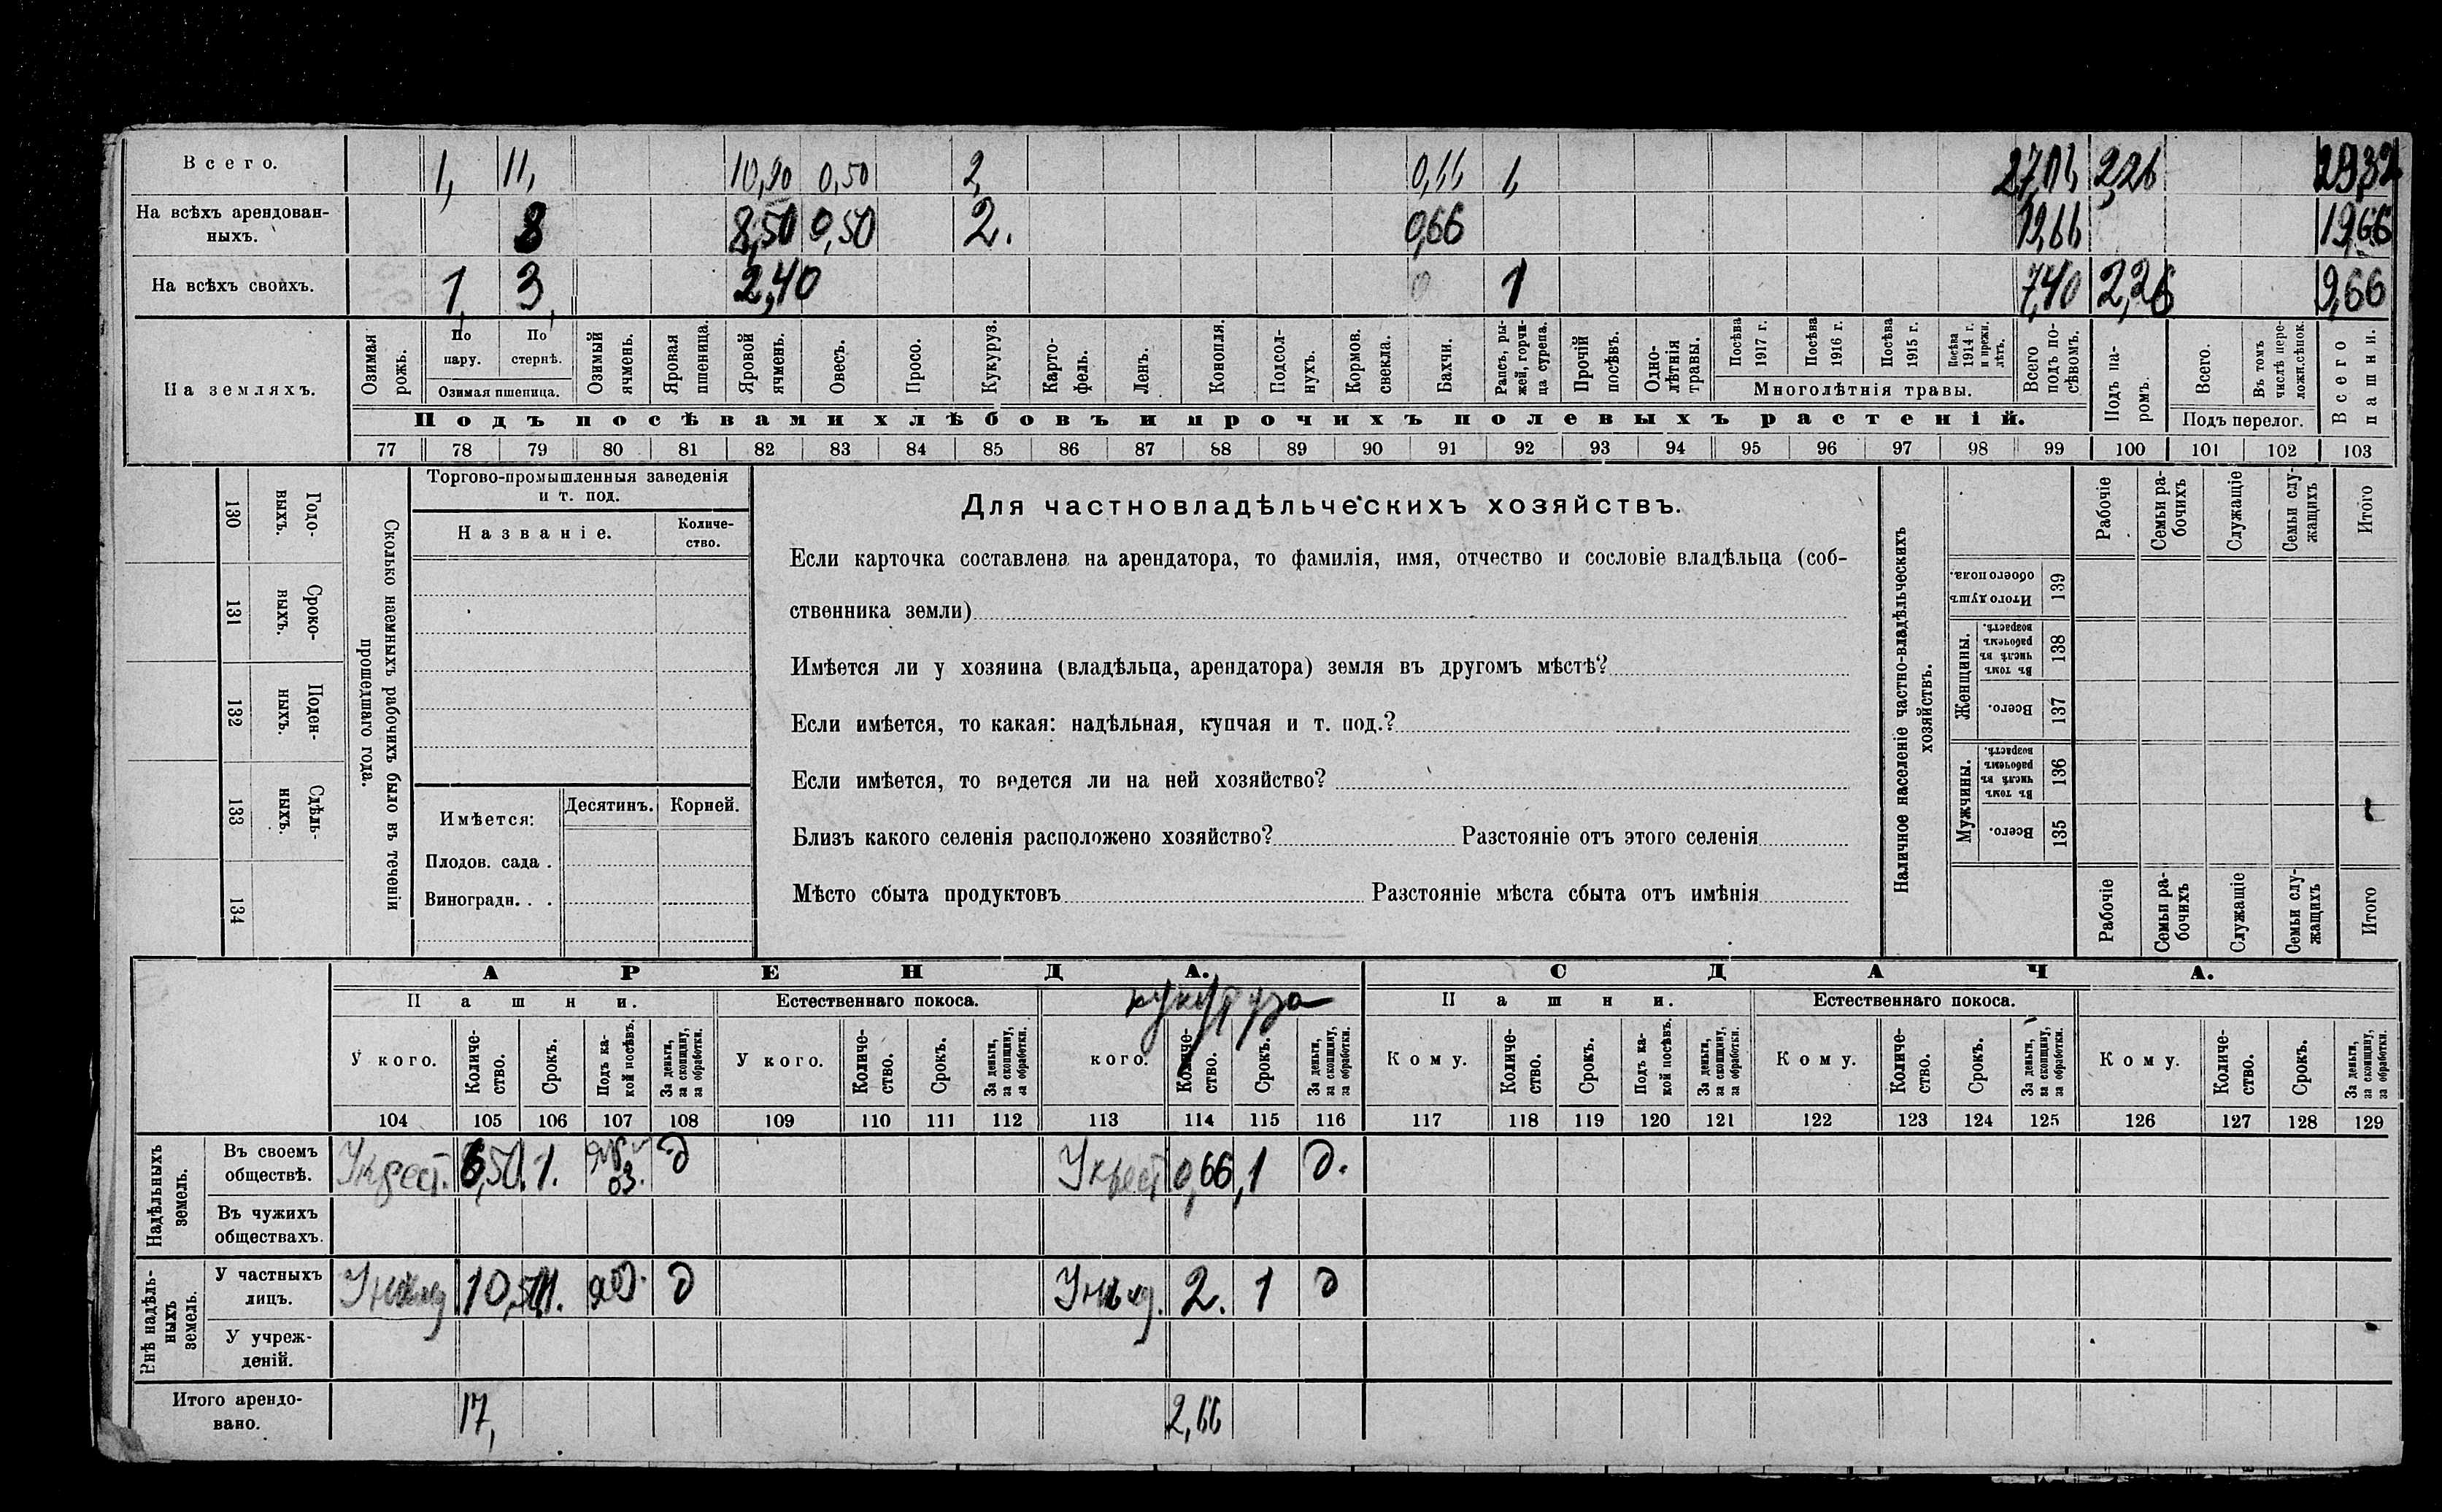 Всего. 1, 11, 10,90 0,50 2, 0,66 1, 27,06 2,26 29,32
На всѣхъ арендован-
ныхъ. 8 8,50 0,50 2. 0,66 19,66 19,66
На всѣхъ своихъ. 1, 3, 2,40 0 1 7,40 2,26 9,66
На земляхъ.
Озимая рожь.
По пару.
По стернѣ.
Озимая пшеница.
Озимый ячмень.
Яровая пшеница.
Яровой ячмень.
Овесъ.
Просо.
Кукуруз.
Карто-
фель.
Ленъ.
Конопля.
Подсол-
нухъ.
Кормов. свекла.
Бахчи.
Рапсъ, ры-
жей, горчи-
ца сурепа.
Прочій посѣвъ.
Одно-
лѣтнія травы.
Посѣва 1917 г.
Посѣва 1916 г.
Посѣва 1915 г.
Посѣва 1914 г. и прежн. лѣтъ.
Многолѣтнія травы.
Всего подъ по-
сѣвомъ.
Подъ па-
ромъ.
Всего.
Въ томъ числѣ пере-
ложн.сѣнок.
Подъ перелог.
Всего пашни.
Подъ посѣвами хлѣбовъ и прочихъ полевыхъ растеній.
77 78 79 80 81 82 83 84 85 86 87 88 89 90 91 92 93 94 95 96 97 98 99 100 101 102 103
130 Годо-
выхъ.
131 Сроко-
выхъ.
132 Поден-
ныхъ.
133 Сдѣль-
ныхъ.
134
Сколько наемныхъ рабочихъ было въ теченіи
прошедшаго года.
Торгово-промышленныя заведенія
и т. под.
Названіе.
Количе-
ство.
Имѣется:
Десятинъ.
Корней.
Плодов. сада .
Виноградн. . .
Для частновладѣльческихъ хозяйствъ.
Если карточка составлена на арендатора, то фамилія, имя, отчество и сословіе владѣльца (соб-
ственника земли)
Имѣется ли у хозяина (владѣльца, арендатора) земля въ другомъ мѣстѣ?
Если имѣется, то какая: надѣльная, купчая и т. под.?
Если имѣется, то ведется ли на ней хозяйство?
Близъ какого селенія расположено хозяйство? Разстояніе отъ этого селенія
Мѣсто сбыта продуктовъ Разстояніе мѣста сбыта отъ имѣнія
Наличное населеніе частно-владѣльческихъ
хозяйствъ.
Рабочіе
Семьи ра-
бочихъ
Служащіе
Семьи слу-
жащихъ
Итого
Итого душъ обоего пола. 139
Женщины.
Въ томъ числѣ въ рабочемъ возрастѣ. 138
Всего. 137
Мужчины.
Въ томъ числѣ въ рабочемъ возрастѣ. 136
Всего. 135
Рабочіе
Семьи ра-
бочихъ
Служащіе
Семьи слу-
жащихъ
Итого
АРЕНДА. СДАЧА.
Пашни. Естественнаго покоса. кукуруза Пашни. Естественнаго покоса.
У кого.
Количе-
ство.
Срокъ.
Подъ ка-
кой посѣвъ.
За деньги,
за скопщину,
за обработки.
У кого.
Количе-
ство.
Срокъ.
За деньги,
за скопщину,
за обработки.
кого.
Количе-
ство.
Срокъ.
За деньги,
за скопщину,
за обработки.
Кому.
Количе-
ство.
Срокъ.
Подъ ка-
кой посѣвъ.
За деньги,
за скопщину,
за обработки.
Кому.
Количе-
ство.
Срокъ.
За деньги,
за скопщину,
за обработки.
Кому.
Количе-
ство.
Срокъ.
За деньги,
за скопщину,
за обработки.
104 105 106 107 108 109 110 111 112 113 114 115 116 117 118 119 120 121 122 123 124 125 126 127 128 129
Надѣльныхъ
земель.
Въ своемъ
обществѣ. У крест. 6,50 1. оз. д У крест 0,66 1 д.
Въ чужихъ
обществахъ.
Внѣ надѣль-
ныхъ
земель.
У частныхъ
лицъ. 10,50 1. д 2. 1 д
У учреж-
деній.
Итого арендо-
вано. 17, 2,66